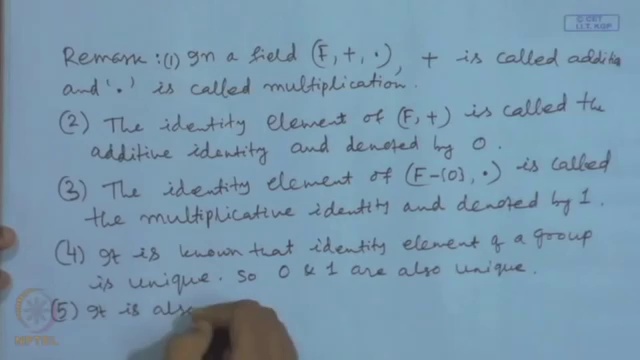 © CET
I.I.T. KGP
Remark : (1) In a field (F, +, ·), + is called additio
and '·' is called multiplication.
(2) The identity element of (F, +) is called the
additive identity and denoted by 0.
(3) The identity element of (F-{0}, ·) is called
the multiplicative identity and denoted by 1.
(4) It is known that identity element of a group
is unique. So 0 & 1 are also unique.
(5) It is als
NPTEL